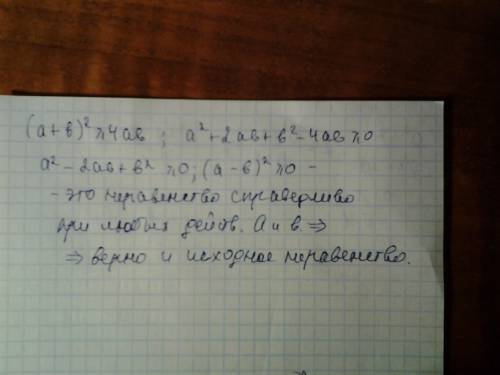 (а+в)²⩾4ав; а²+2ав+в²-4ав⩾0
а²-2ав+в²⩾0; (а-в)²⩾0 -
- это неравенство справедливо
при любых действ. а и в. ⇒
⇒ верно и исходное неравенство.